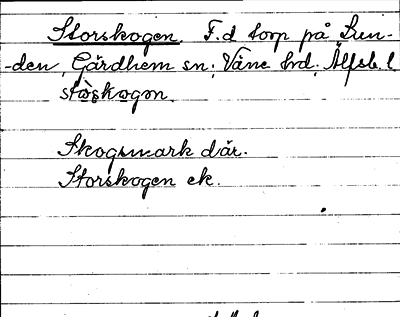 Storskogen. F.d torp på Lun-
-den, Gärdhem sn; Väne hrd; Älfsb. l.
stòskogon.
Skogsmark där.
Storskogen ek.